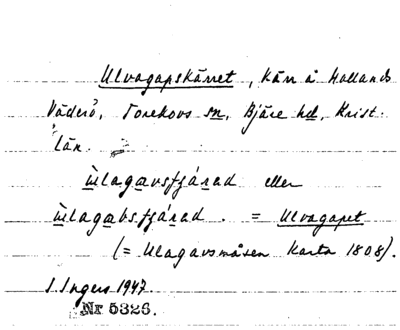 Ulvagapskärret, kärr å Hallands
Väderö, Torekovs sn, Bjäre hd, Krist.
län.
ùlagavsfjárad eller
ùlagabsfjárad. = Ulvagapet
(= Ulagavsmåsen Karta 1808).
I. Ingers 1947.
Nr 5326.